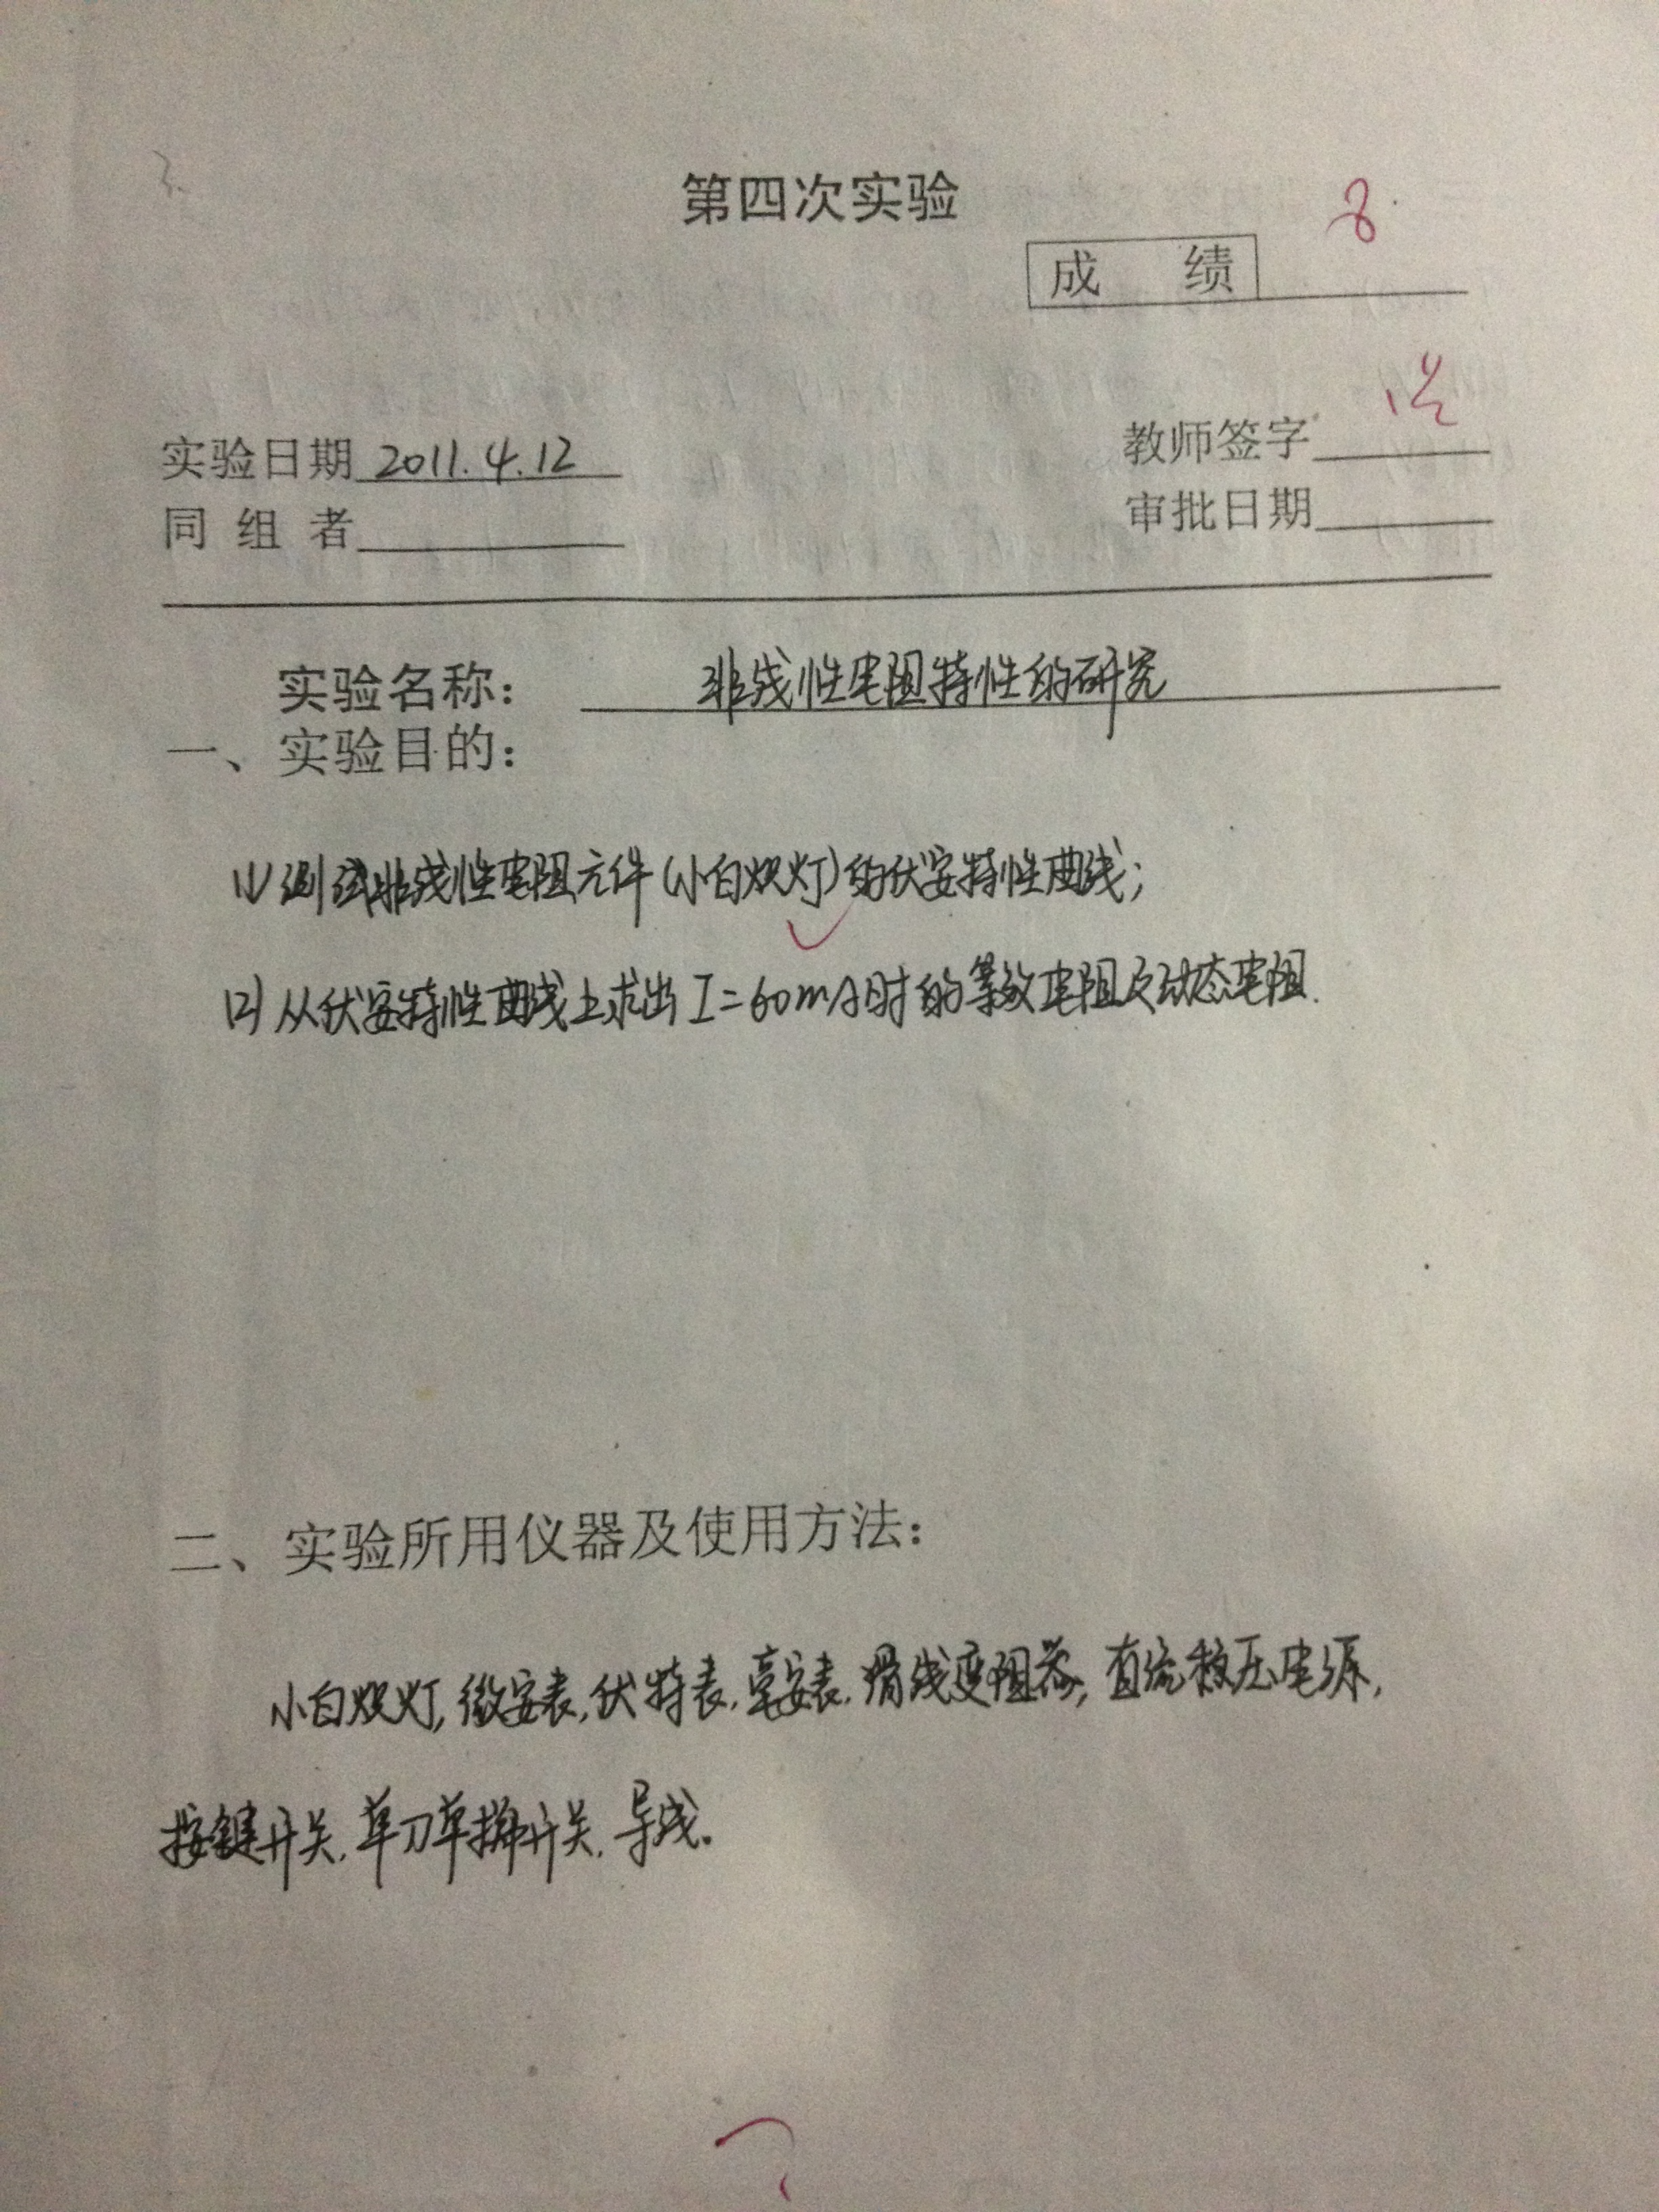 第四次实验
8
成 绩
实验日期 2011.4.12
教师签字
同 组 者
审批日期
实验名称: 非线性电阻特性的研究
一、实验目的:
(1) 测试非线性电阻元件(小白炽灯)的伏安特性曲线;
(2) 从伏安特性曲线上求出I=60mA时的等效电阻及动态电阻.
二、实验所用仪器及使用方法:
小白炽灯,微安表,伏特表,毫安表,滑线变阻器,直流稳压电源,
按键开关,单刀单掷开关,导线。